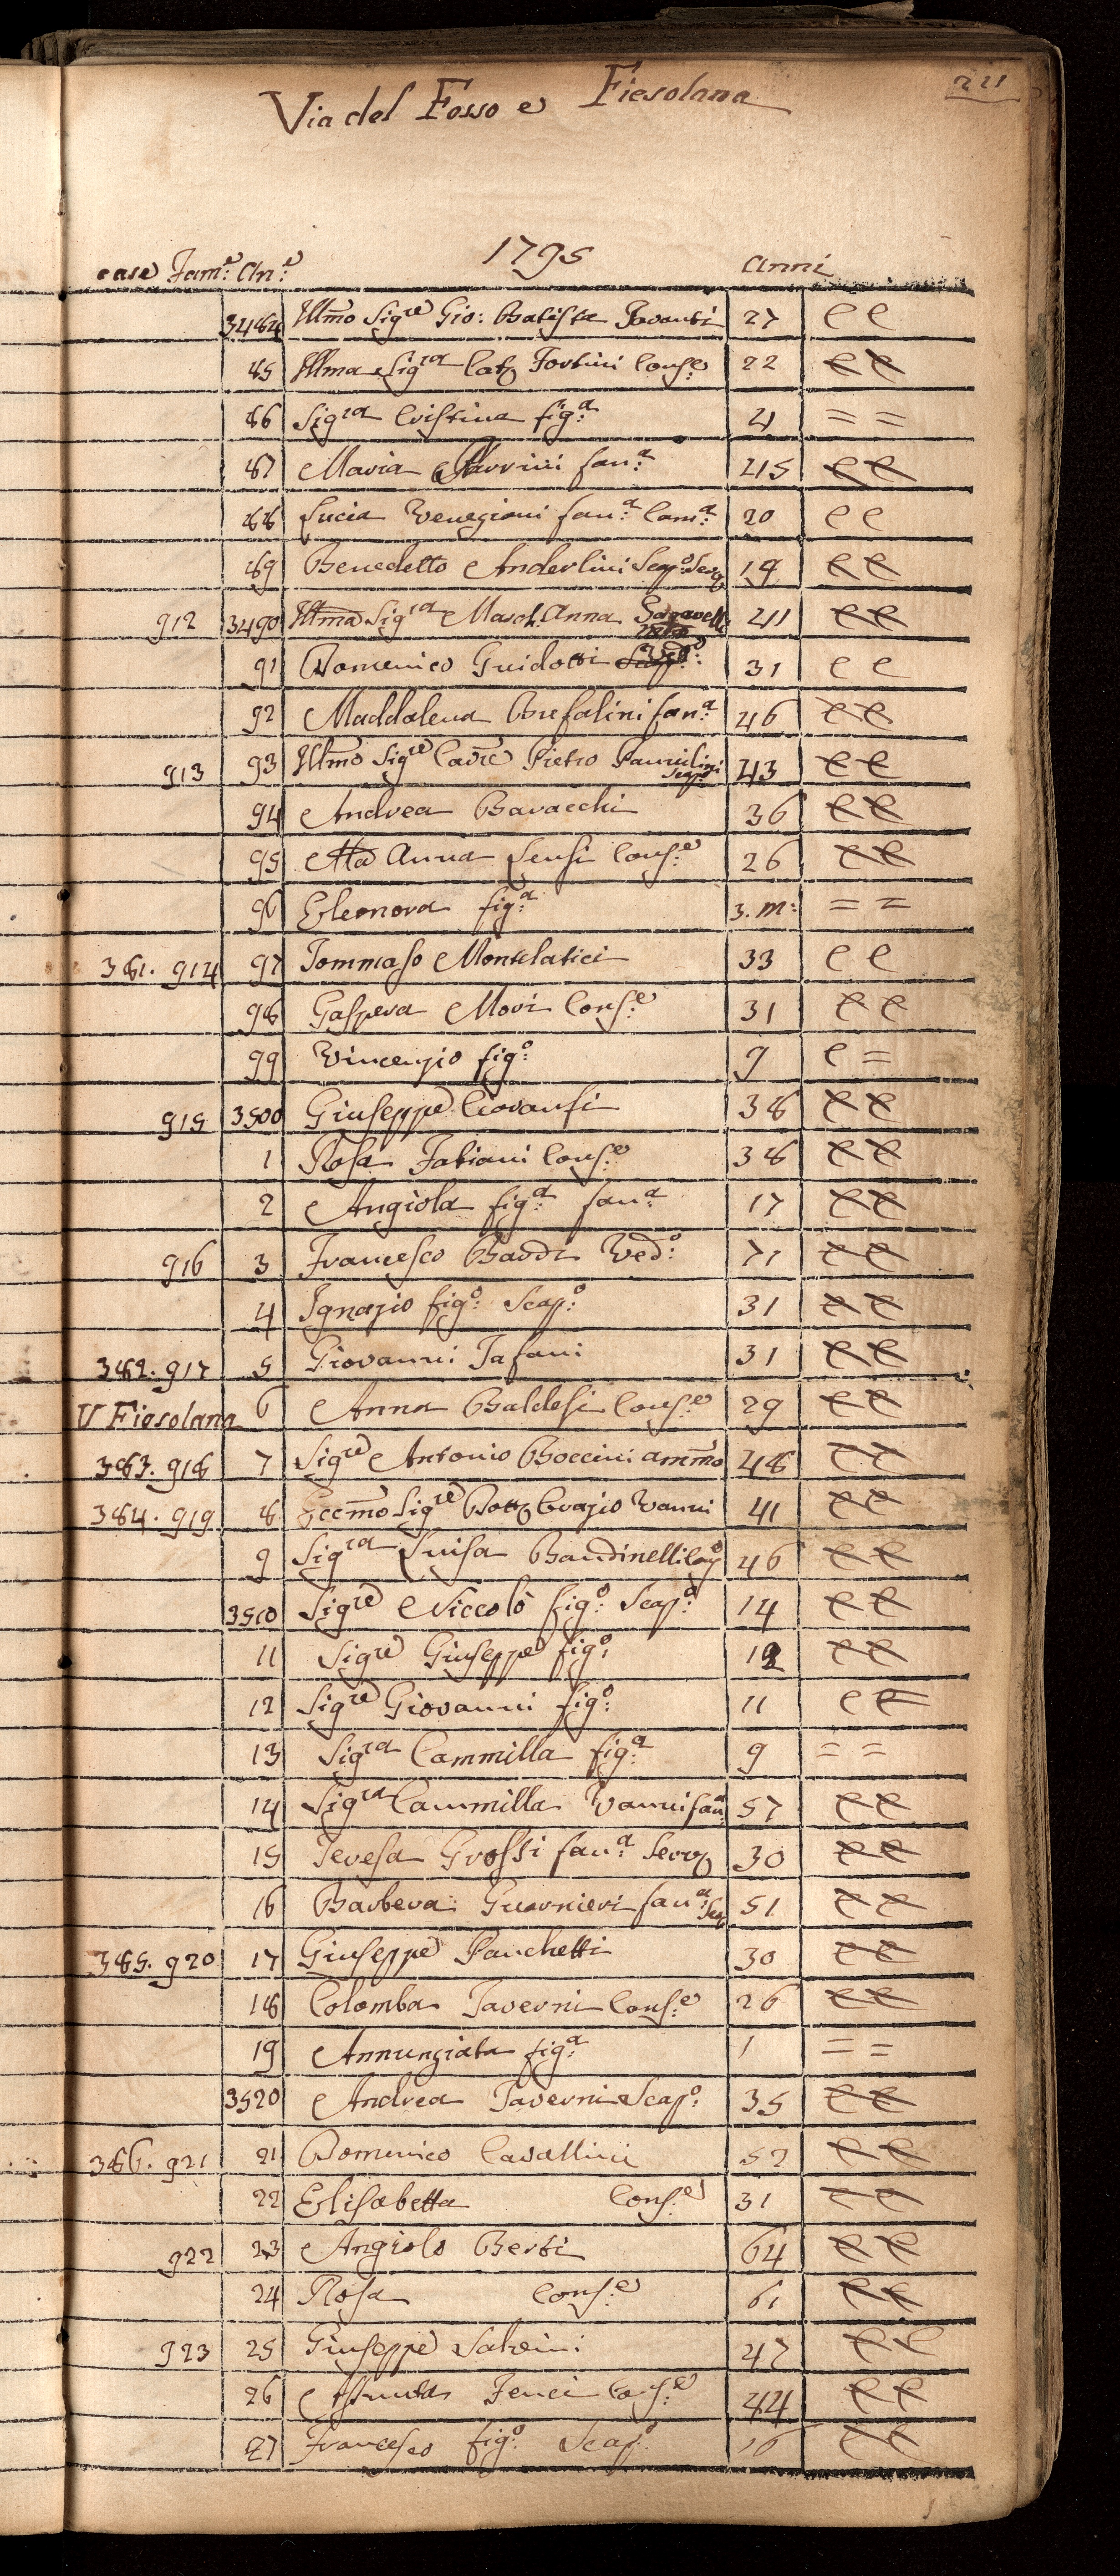 221
Via del Fosso e Fiesolana
1795
case Fam.e An.e anni
3484 Ill̃mo Sigre Gio: Batista 27 C C
85 Illma Sigra Catt Fortini Cons.e 22 C C
86 Sigra Cristina fig.a 4 = =
87 Maria Marrini fan.a 45 C C
88 Lucia Venegiani fan.a Cam.a 20 C C
89 Benedetto Anderlini Scap.o Serv 19 C C
912 3490 Ill̃ma Sigra March. Anna 41 C C
91 Domenico Guidotti Ved.o 31 C C
92 Maddalena Brefalini fan.a 46 C C
913 93 Ill̃mo Sigre Cavre Pietro Pannilini Scapo 43 C C
94 Andrea Baracchi 36 C C
95 Ma Anna Sensi Cons.e 26 C C
96 Eleonora fig.a 3. m: = =
381. 914 97 Tommaso Montelatici 33 C C
98 Gaspera Mori Cons.e 31 C C
99 Vincenzio fig.o 9 C =
915 3500 Giuseppe 38 C C
1 Rosa Fabiani Cons.e 38 C C
2 Angiola fig.a fan.a 17 C C
916 3 Francesco Bardi Ved.o 71 C C
4 Ignazio fig.o Scap.o 31 C C
382. 917 5 Giovanni Tafani 31 C C
V Fiesolana 6 Anna Baldesi Cons.e 29 C C
383. 918 7 Sigre Antonio Boccini amm̃o 48 C C
384. 919 8 Eccm̃o Sigre Dott Orazio Vanni 41 C C
9 Sigra Luisa Bandinelli 46 C C
3510 Sigre Niccolò fig.o Scap.o 14 C C
11 Sigre Giuseppe fig.o 12 C C
12 Sigre Giovanni fig.o 11 C C
13 Sigra Cammilla fig.a 9 = =
14 Sigra Cammilla Vanni fan.a 57 C C
15 Teresa Grossi fan.a Serv 30 C C
16 Barbera Guarnieri fan.a Ser 51 C C
385. 920 17 Giuseppe Panchetti 30 C C
18 Colomba Taverni Cons.e 26 C C
19 Annunziata fig.a 1 = =
3520 Andrea Taverni Scap.o 35 C C
386. 921 21 Domenico Cavallini 52 C C
22 Elisabetta Cons.e 31 C C
922 23 Angiolo Berti 64 C C
24 Rosa Cons.e 61 C C
923 25 Giuseppe Salvini 47 C C
26 Assunta Fenci Cons.e 44 C C
27 Francesco fig.o Scap.o 16 C C